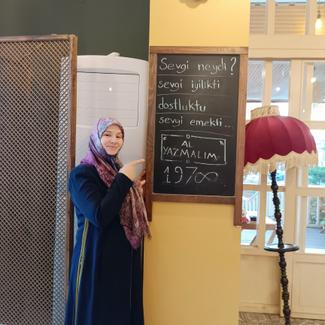 Sevgi neydi?
sevgi iyilikti
dostluktu
sevgi emekti...
AL
YAZMALIM
1978